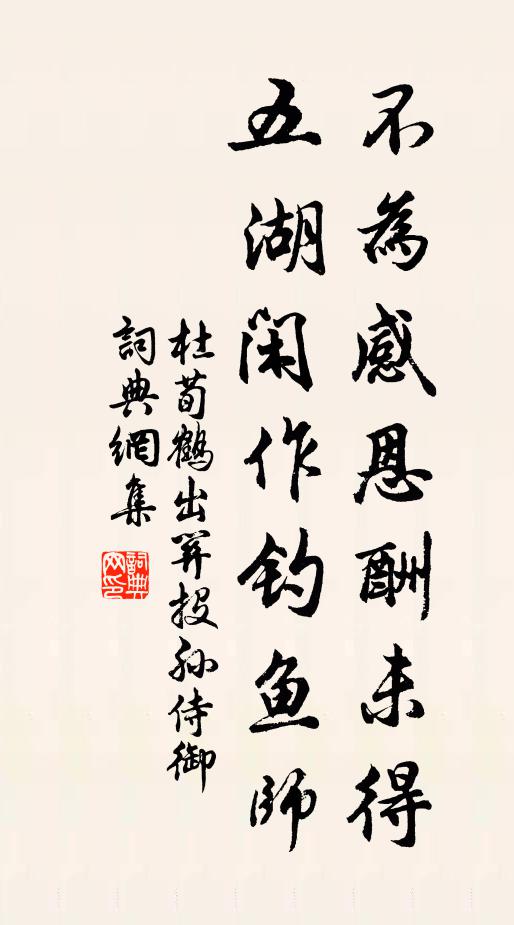 不為感恩酬未得
五湖閑作釣鱼師
杜荀鶴出關投孫侍御
詞典網集
詞典
网印